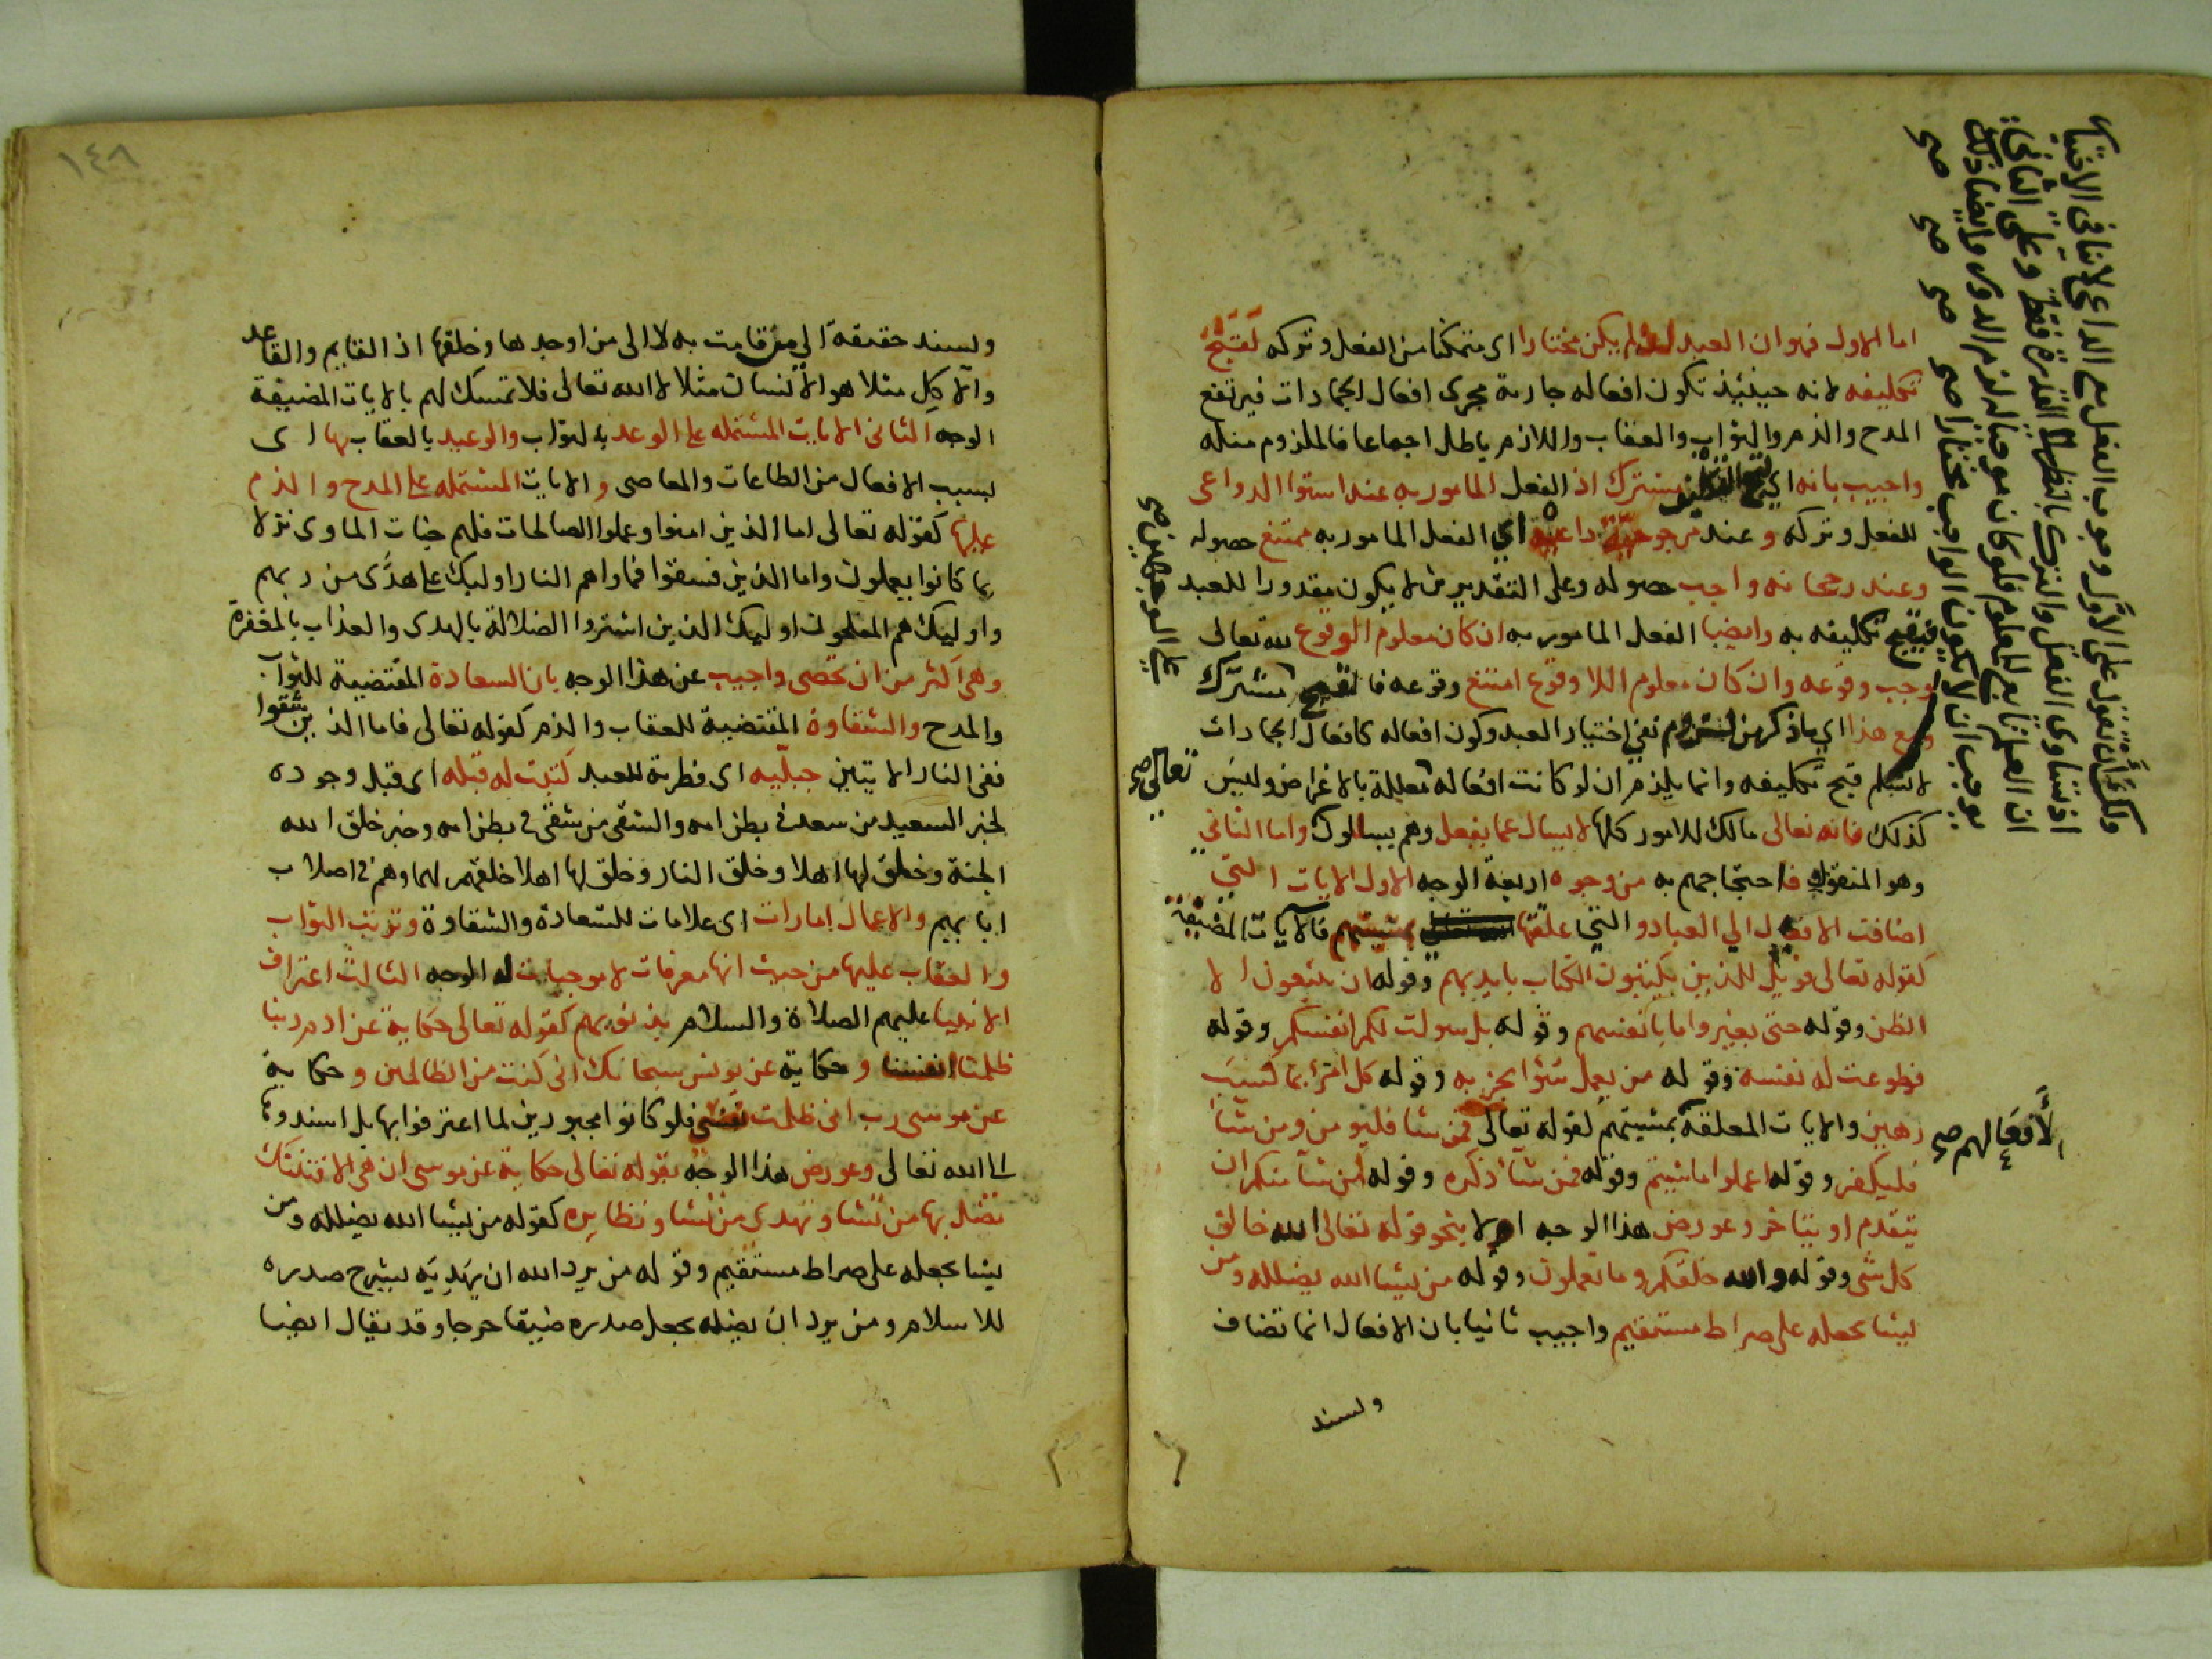 اما الاول فهو ان العبد لو لم يكن مختارا اى متمكنا من الفعل وتركه لقبح
تكليفه لانه حينئذ تكون افعاله جارية مجرى افعال الجمادات فيرتفع
المدح والذم والثواب والعقاب واللازم باطل اجماعا فالملزوم مثله
واجيب بانه اى مشترك اذ الفعل المامور به عند استوا الدواعى
للفعل وتركه وعند مرجوحية داعية اي الفعل المامور به ممتنع حصوله
وعند رجحانه واجب حصوله وعلى التقديرين لا يكون مقدورا للعبد
فيقبح تكليفه به وايضا الفعل المامور به ان كان معلوم الوقوع لله تعالى
وجب وقوعه وان كان معلوم اللا وقوع امتنع وقوعه فالقبح مشترك
ومع هذا اي ما ذكر من نفي اختيار العبد وكون افعاله كافعال الجمادات
لا يستلزم قبح تكليفه وانما يلزم ان لو كانت افعاله معللة بالاغراض وليس
كذلك فانه تعالى مالك للامور كلها لا يسال عما يفعل وهم يسالون واما الثانى
وهو المنقول فاحتجاجهم به من وجوه اربعة الوجه الاول الايات التي
اضافت الافعال الي العباد والتي علقتها بمشيتهم فالآيات المضيفة
كقوله تعالى فويل للذين يكتبون الكتاب بايديهم وقوله ان يتبعون الا
الظن وقوله حتى يغيروا ما بانفسهم وقوله بل سولت لكم انفسكم وقوله
فطوعت له نفسه وقوله من يعمل سوا يجز به وقوله كل امرئ بما كسب
رهين والايات المعلقة بمشيتهم كقوله تعالى فمن شا فليومن ومن شا
فليكفر وقوله اعملوا ما شيتم وقوله فمن شا ذكره وقوله لمن شا منكم ان
يتقدم او يتاخر وعورض هذا الوجه اولا بنحو قوله تعالى الله خالق
كل شى وقوله والله خلقكم وما تعملون وقوله من يشا الله يضلله ومن
يشا يجعله على صراط مستقيم واجيب ثانيا بان الافعال انما تضاف
ويسند
ولك ان تقول على الاول وجوب الفعل مع الداعى لا ينافى الاختيار
اذ تساوى الفعل والترك بالنظر الى القدرة فقط وعلى الثانى
ان العلم تابع للمعلوم فلو كان موجبا له لزم الدور وايضا ذلك
يوجب ان لا يكون الواجب مختارا صح صح صح صح
على الوجهين صح
تعالى صح
لافعالهم صح
١٤٨
ويسند حقيقة الى من قامت به لا الى من اوجدها وخلقها اذ القايم والقاعد
والاكل مثلا هو الانسان مثلا لا الله تعالى فلا تمسك لهم بالايات المضيفة
الوجه الثانى الايات المشتملة على الوعد بالثواب والوعيد بالعقاب بها اى
بسبب الافعال من الطاعات والمعاصى والايات المشتملة على المدح والذم
عليها كقوله تعالى اما الذين امنوا وعملوا الصالحات فلهم جنات الماوى نزلا
بما كانوا يعملون واما الذين فسقوا فماواهم النار اوليك على هدى من ربهم
واوليك هم المفلحون اوليك الذين اشتروا الضلالة بالهدى والعذاب بالمغفرة
وهى اكثر من ان تحصى واجيب عن هذا الوجه بان السعادة المقتضية للثواب
والمدح والشقاوة المقتضية للعقاب والذم كقوله تعالى فاما الذين شقوا
ففى النار الايتين جبلية اى فطرية للعبد كتبت له قبله اى قبل وجوده
لخبر السعيد من سعد فى بطن امه والشقى من شقى فى بطن امه وخبر خلق الله
الجنة وخلق لها اهلا وخلق النار وخلق لها اهلا خلقهم لهما وهم فى اصلاب
ابايهم والاعمال امارات اى علامات للسعادة والشقاوة وترتب الثواب
والعقاب عليها من حيث انها معرفات لا موجبات له الوجه الثالث اعتراف
الانبيا عليهم الصلاة والسلام بذنوبهم كقوله تعالى حكاية عن ادم ربنا
ظلمنا انفسنا وحكاية عن يونس سبحانك انى كنت من الظالمين وحكاية
عن موسى رب انى ظلمت نفسى فلو كانوا مجبورين لما اعترفوا بها بل اسندوها
الى الله تعالى وعورض هذا الوجه بقوله تعالى حكاية عن موسى ان هى الا فتنتك
تضل بها من تشا وتهدى من تشا ونظايره كقوله من يشا الله يضلله ومن
يشا يجعله على صراط مستقيم وقوله من يرد الله ان يهديه يشرح صدره
للاسلام ومن يرد ان يضله يجعل صدره ضيقا حرجا وقد يقال ايضا